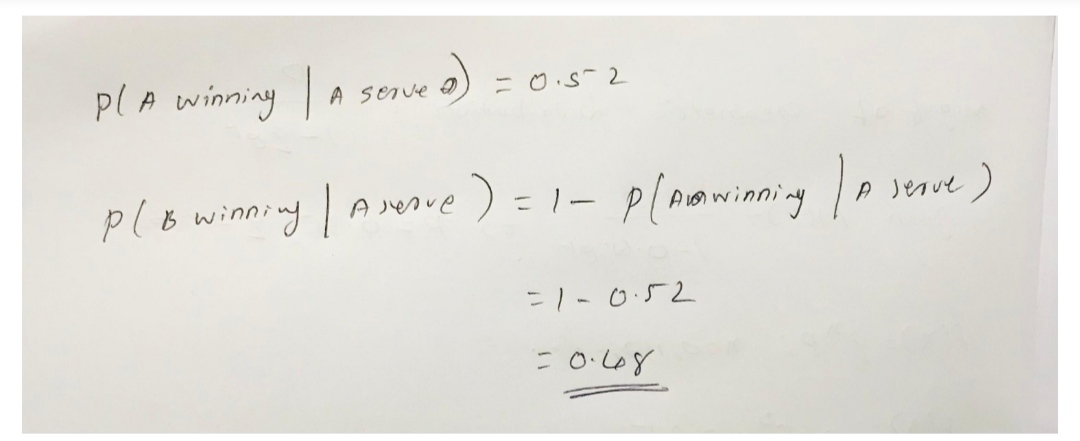 P(A winning | A serve) = 0.52
P(B winning | A serve) = 1 - P(A winning | A serve)
= 1 - 0.52
= 0.48